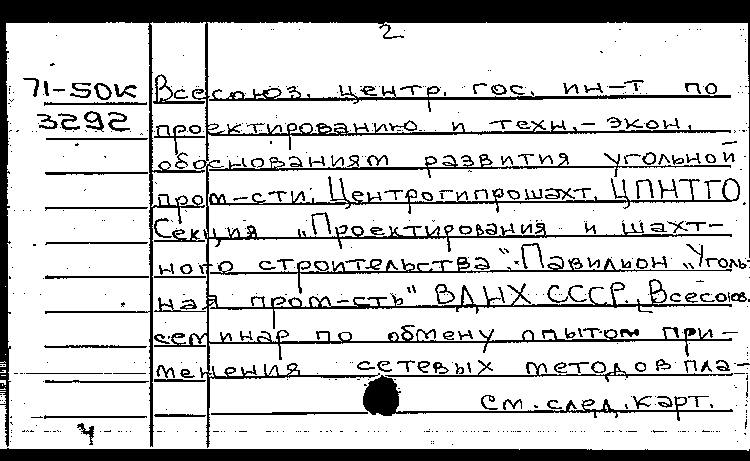 2
71-50К Всесоюз. центр. гос. ин-т по
3292 проектированию и техн.-экон.
обоснованиям развития угольной
пром-сти. Центрогипрошахт. ЦПНТГО.
Секция "Проектирования и шахт-
ного строительства". Павильон "Уголь-
ная пром-сть" ВДНХ СССР. [Всесоюз.
семинар по обмену опытом при-
менения сетевых методов пла-
см. след. карт.
4